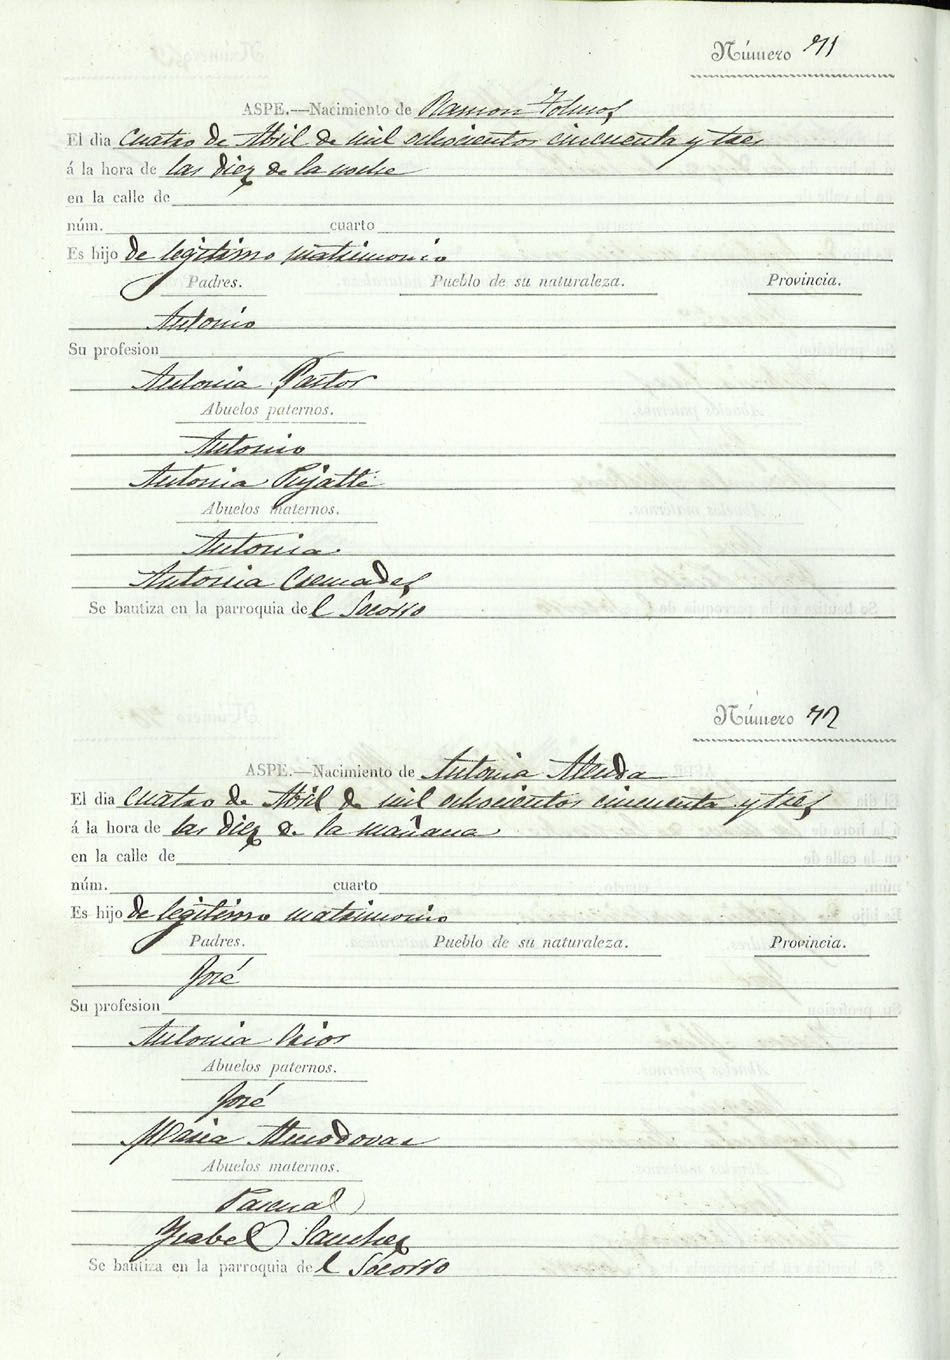 Número 71
ASPE.—Nacimiento de Ramon
El dia cuatro de Abril de mil ochocientos cincuenta y tres
á la hora de las diez de la noche
en la calle de
núm. cuarto
Es hijo de legitimo matrimonio
Padres. Pueblo de su naturaleza. Provincia.
Antonio
Su profesion
Antonia Pastor
Abuelos paternos.
Antonio
Antonia
Abuelos maternos.
Antonia
Antonia Cremades
Se bautiza en la parroquia del Socorro
Número 72
ASPE.—Nacimiento de Antonia Alenda
El dia cuatro de Abril de mil ochocientos cincuenta y tres
á la hora de las diez de la mañana
en la calle de
núm. cuarto
Es hijo de legitimo matrimonio
Padres. Pueblo de su naturaleza. Provincia.
José
Su profesion
Antonia Rios
Abuelos paternos.
José
Maria Almodovar
Abuelos maternos.
Pascual
Ysabel Sanchez
Se bautiza en la parroquia del Socorro